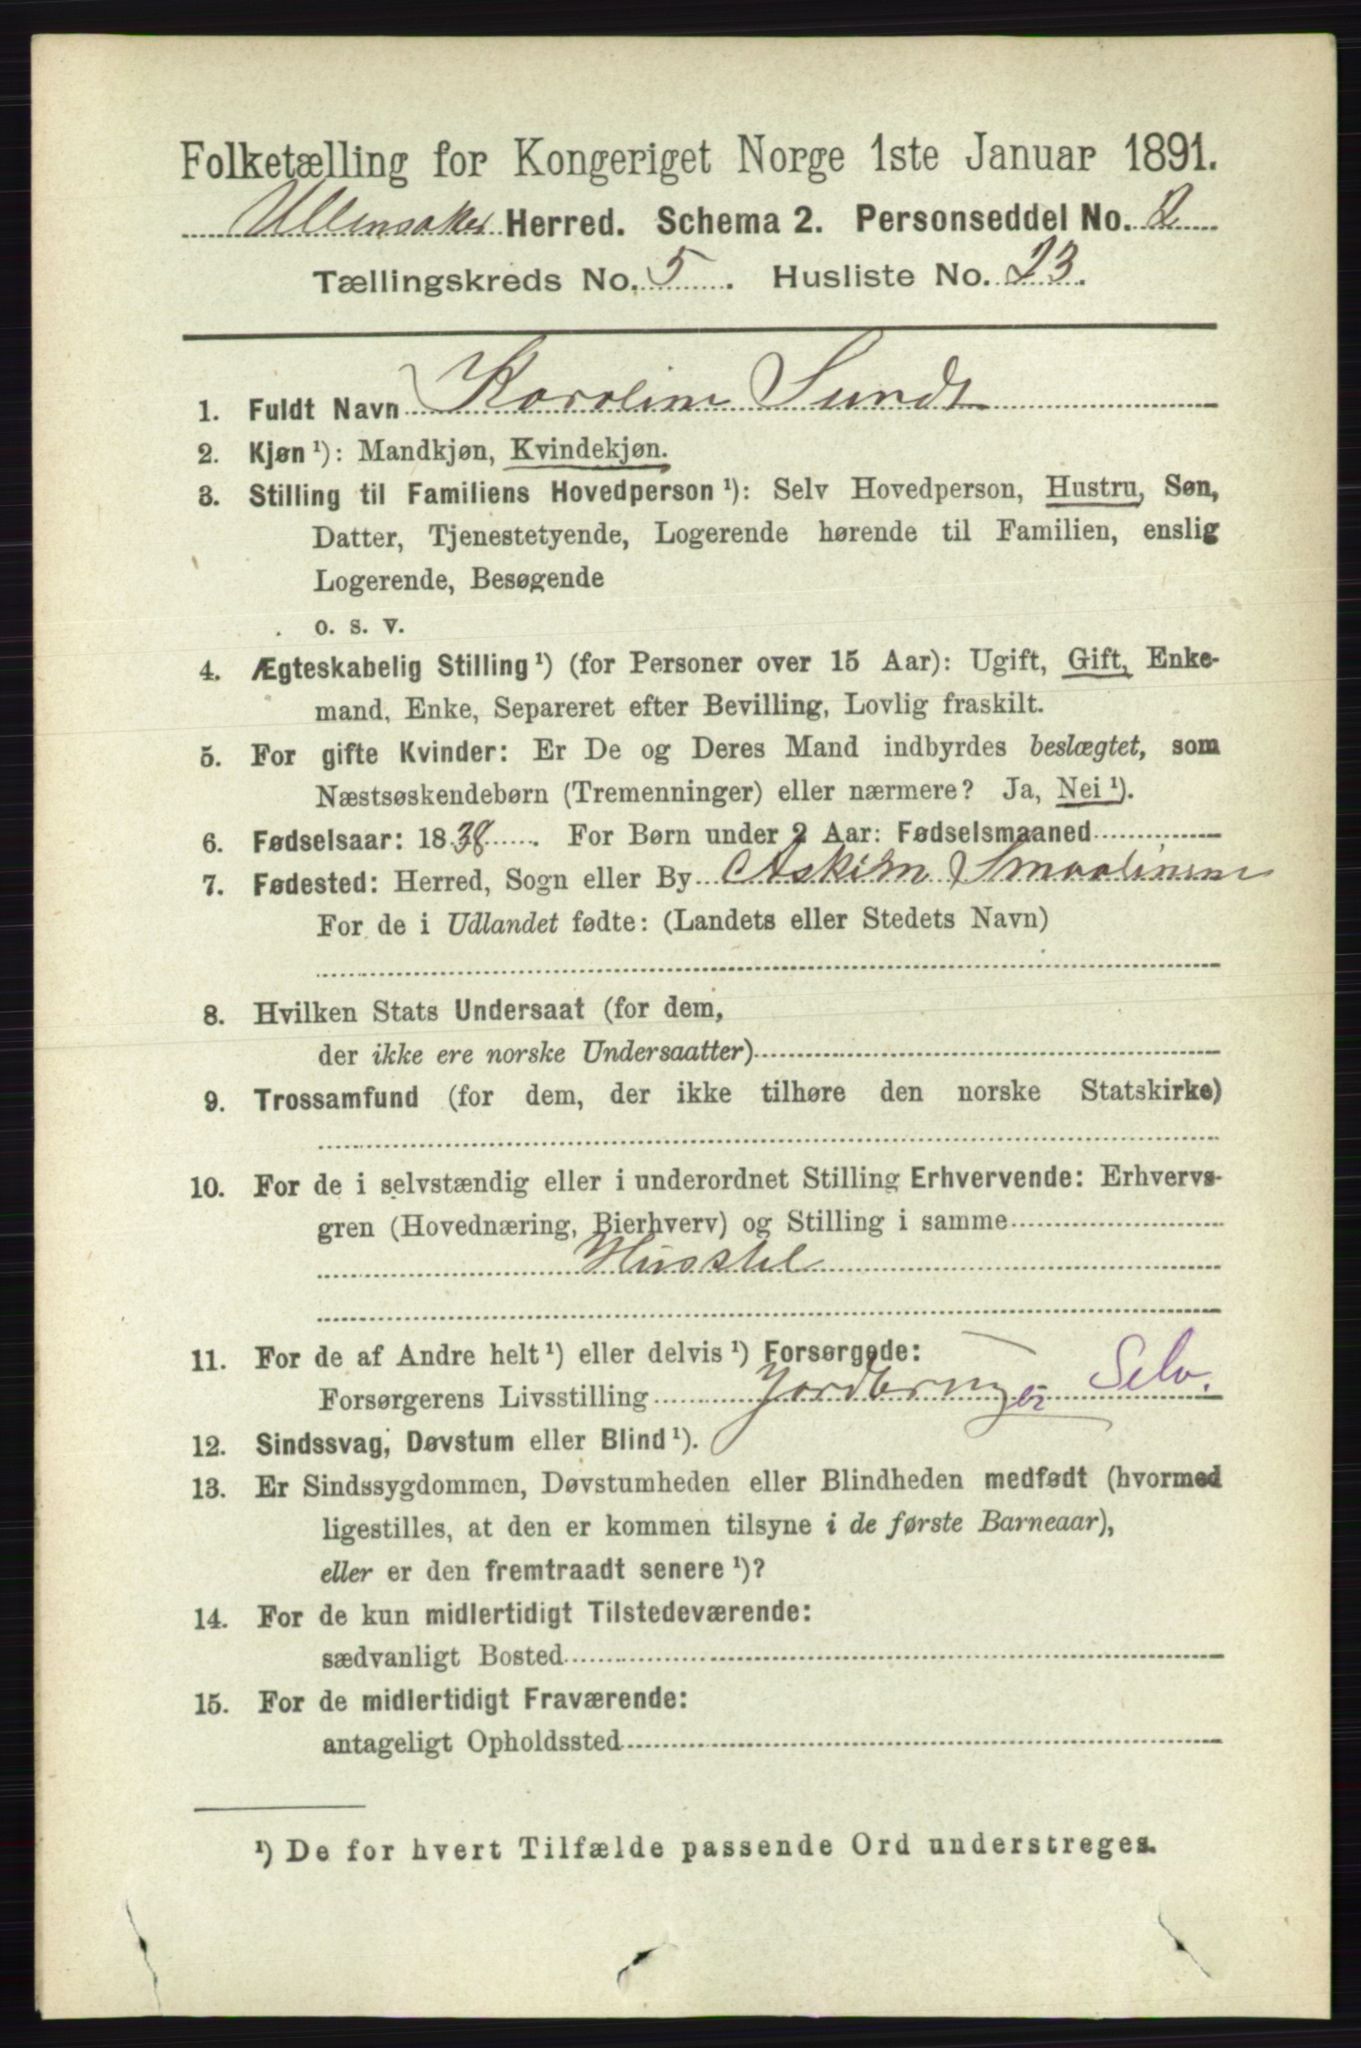 Folketælling for Kongeriget Norge 1ste Januar 1891.
Ullensaker Herred. Schema 2. Personseddel No. 2
Tællingskreds No. 5. Husliste No. 23.
1. Fuldt Navn Karoline Sundt
2. Kjøn¹): Mandkjøn, Kvindekjøn.
3. Stilling til Familiens Hovedperson¹): Selv Hovedperson, Hustru, Søn,
Datter, Tjenestetyende, Logerende hørende til Familien, enslig
Logerende, Besøgende
o. s. v.
4. Ægteskabelig Stilling¹) (for Personer over 15 Aar): Ugift, Gift, Enke-
mand, Enke, Separeret efter Bevilling, Lovlig fraskilt.
5. For gifte Kvinder: Er De og Deres Mand indbyrdes beslægtet, som
Næstsøskendebørn (Tremenninger) eller nærmere? Ja, Nei¹).
6. Fødselsaar: 1838. For Børn under 2 Aar: Fødselsmaaned
7. Fødested: Herred, Sogn eller By Askim Smaalinene
For de i Udlandet fødte: (Landets eller Stedets Navn)
8. Hvilken Stats Undersaat (for dem,
der ikke ere norske Undersaatter)
9. Trossamfund (for dem, der ikke tilhøre den norske Statskirke)
10. For de i selvstændig eller i underordnet Stilling Erhvervende: Erhvervs-
gren (Hovednæring, Bierhverv) og Stilling i samme
Husstel
11. For de af Andre helt¹) eller delvis¹) Forsørgede:
Forsørgerens Livsstilling Jordbruger Selv.
12. Sindssvag, Døvstum eller Blind¹).
13. Er Sindssygdommen, Døvstumheden eller Blindheden medfødt (hvormed
ligestilles, at den er kommen tilsyne i de første Barneaar),
eller er den fremtraadt senere¹)?
14. For de kun midlertidigt Tilstedeværende:
sædvanligt Bosted
15. For de midlertidigt Fraværende:
antageligt Opholdssted
¹) De for hvert Tilfælde passende Ord understreges.